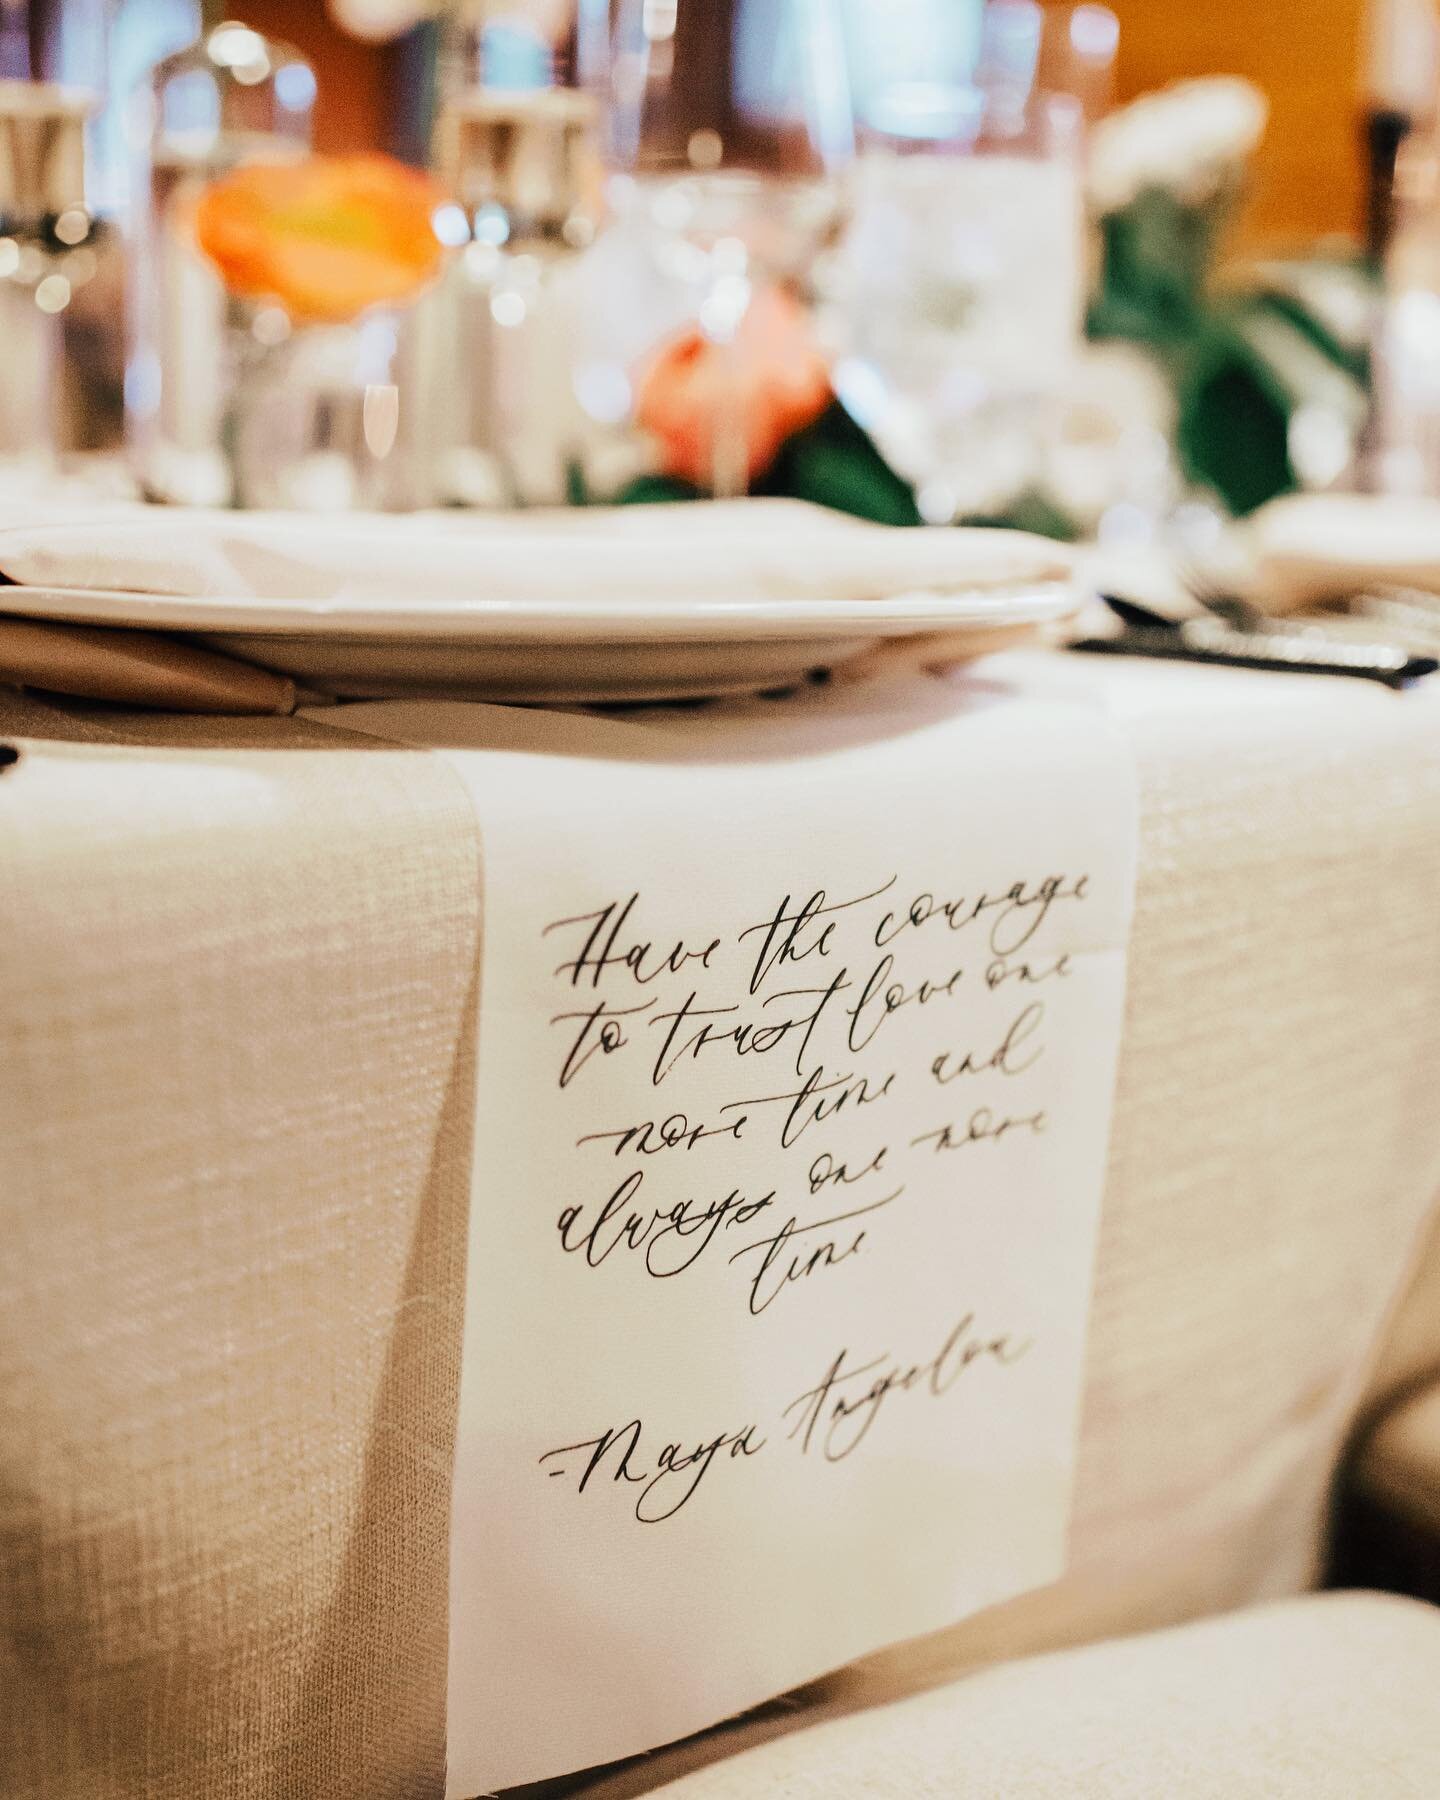 Have the courage
to trust love one
more time and
always one more
time
-Maya Angelou